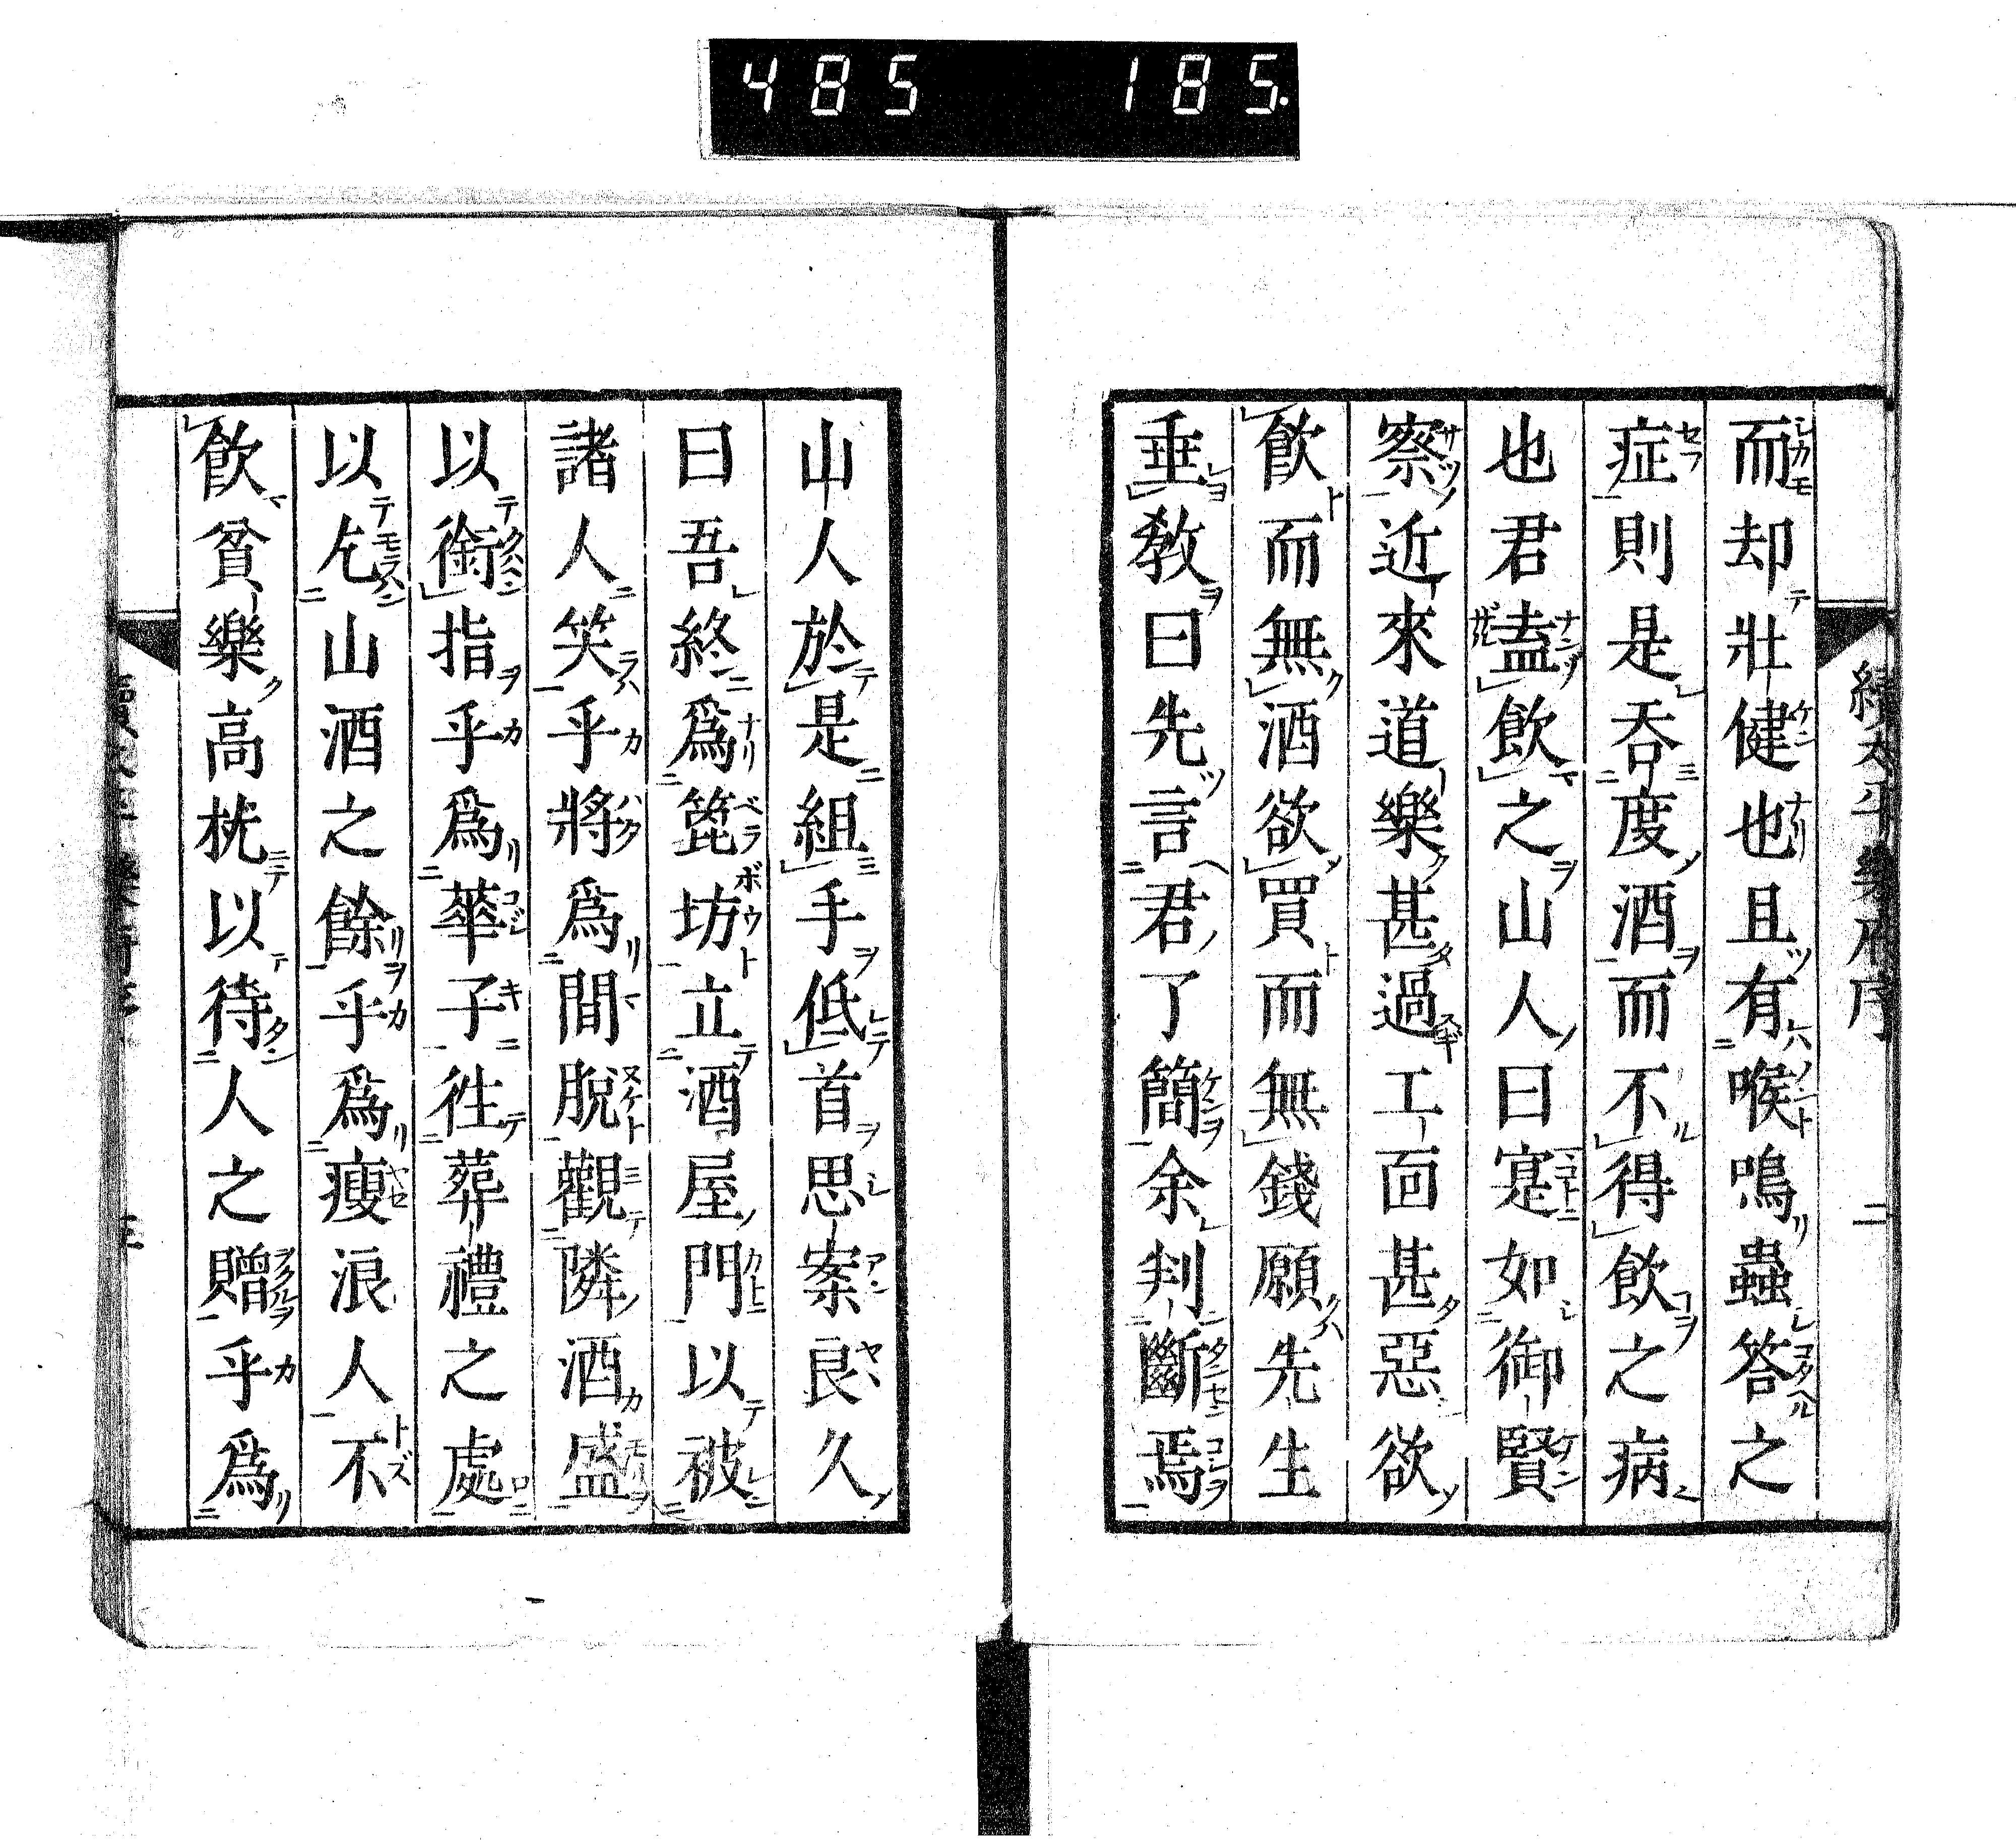 485 185.
續太平樂府序 二
而却壯健也且有喉鳴蟲答之
症則是呑度酒而不得飮之病
也君盍飮之山人曰寔如御賢
察近來道樂甚過工面甚惡欲
飮而無酒欲買而無錢願先生
垂敎曰先言君了簡余判斷焉
山人於是組手低首思案良久
曰吾終爲箆坊立酒屋門以被
諸人笑乎將爲間脫觀隣酒盛
以銜指乎爲葬子徃葬禮之處
以乞山酒之餘乎爲瘦浪人不
飮貧樂高枕以待人之贈乎爲